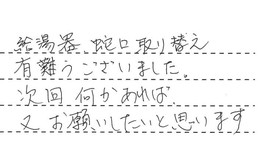 給湯器 蛇口取り替え
有難うございました。
次回 何かあれば
又 お願いしたいと思います